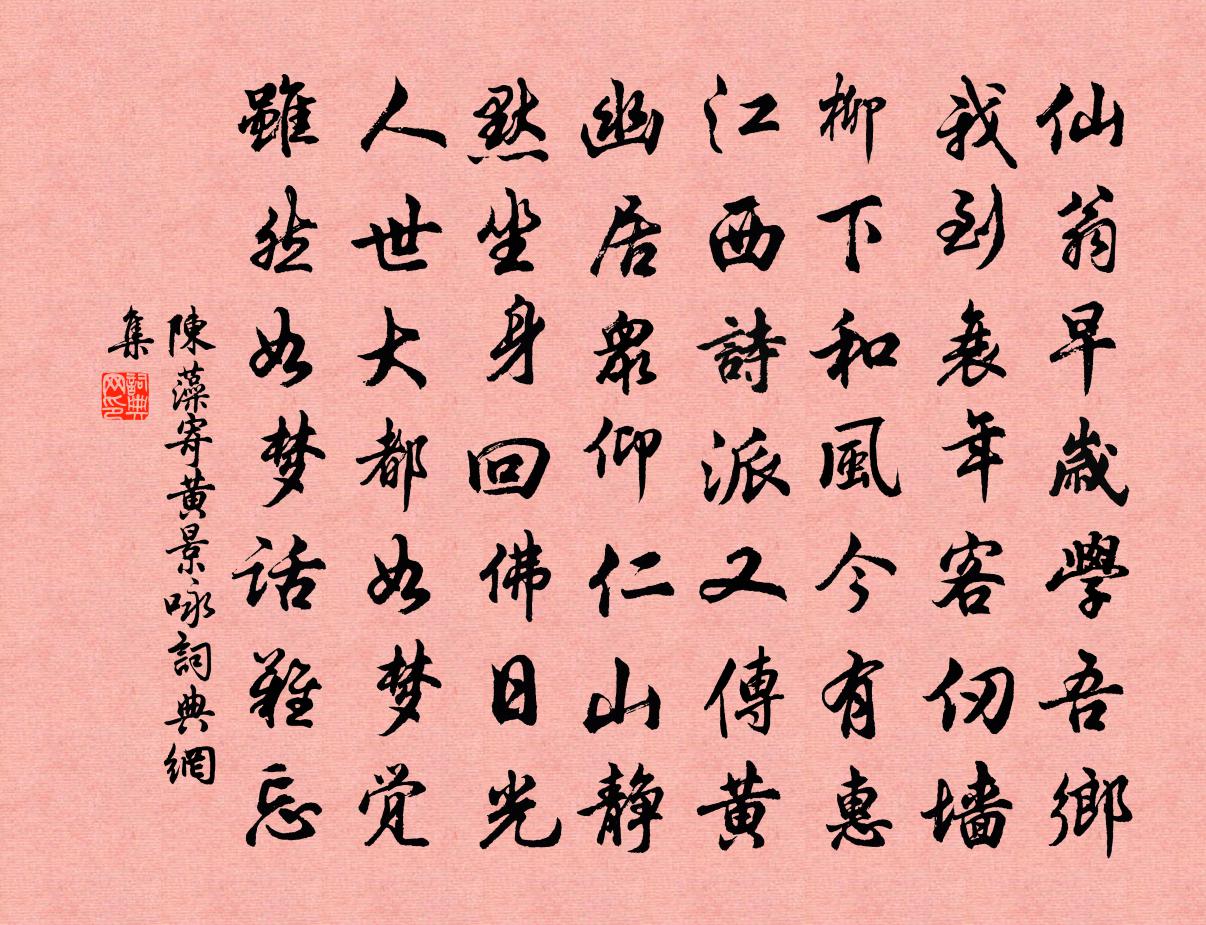 仙翁早歲學吾鄉
我到衰年客仞墻
柳下和風今有惠
江西詩派又傳黃
幽居眾仰仁山靜
默坐身回佛日光
人世大都如梦覚
雖然如梦話難忘
陳藻寄黃景咏詞典網
集
詞典網印